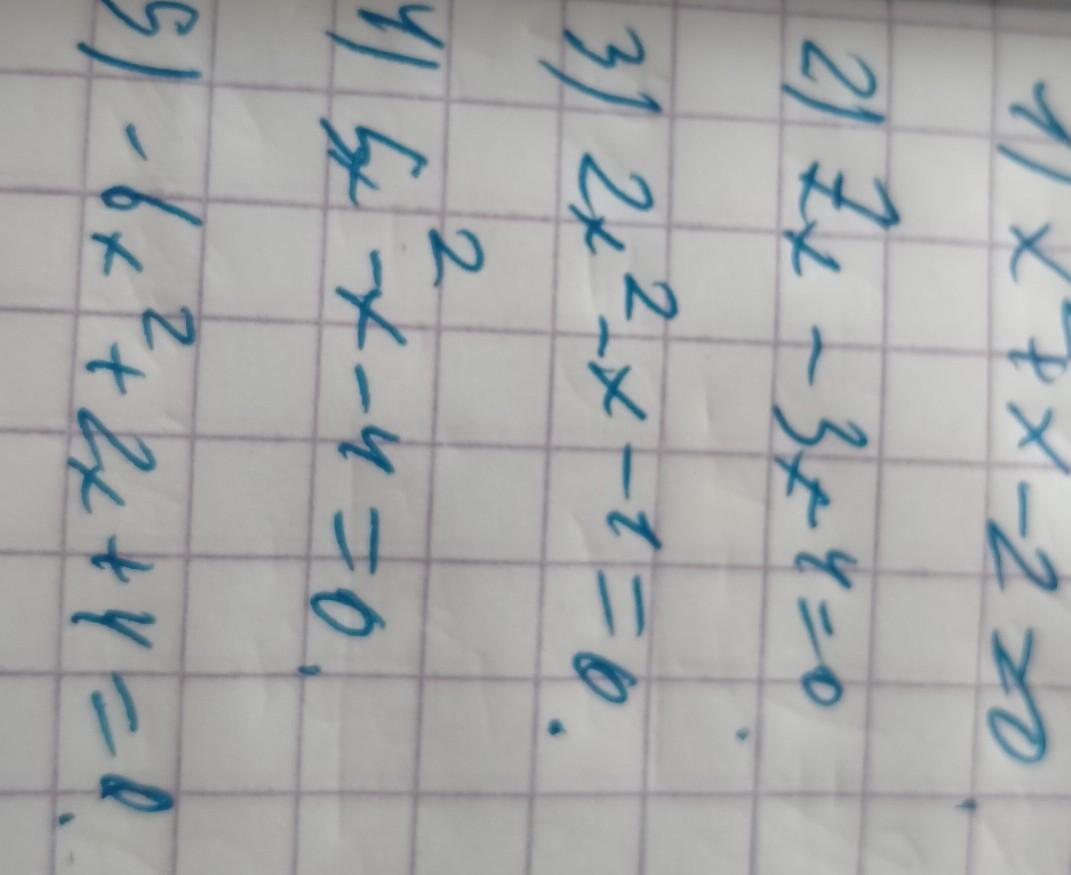 1) x²+x-2=0
2) 7x-3x-4=0
3) 2x²-x-1=0.
4) 5x²-x-4=0.
5) -6x²+2x+4=0.